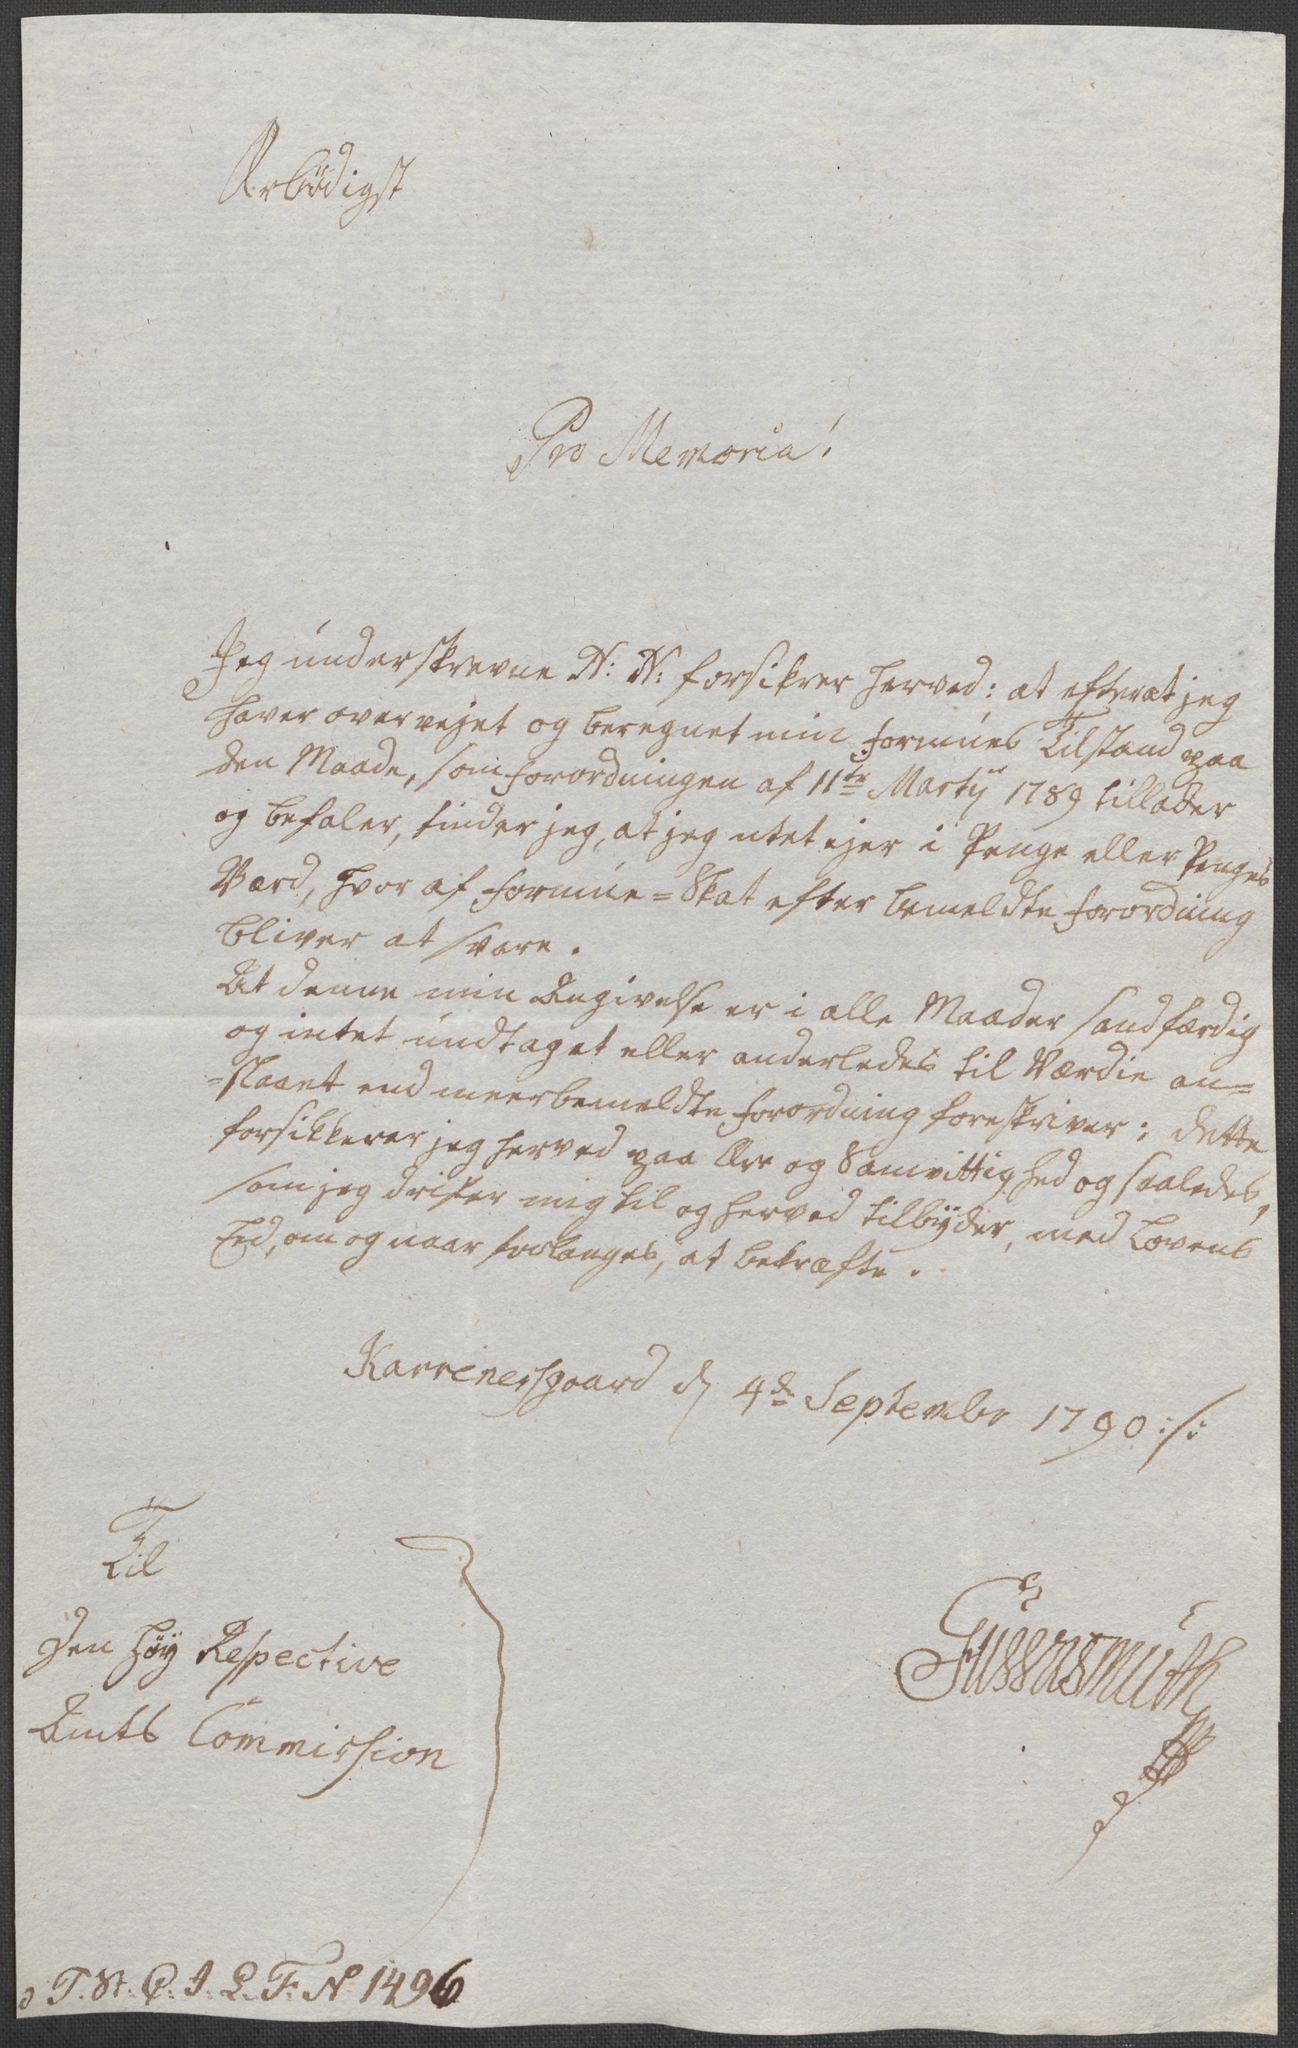 Ærbødigst
Pro Memoria!
Jeg underskrevne N: N: forsikrer herved: at efterat jeg
haver overvejet og beregnet min Formues Tilstand paa
den Maade, som Forordningen af 11te Martÿ 1789 tillader
og befaler, finder jeg, at jeg intet ejer i Penge eller Penges
Værd, hvor af Formue=Skat efter bemeldte Forordning
bliver at svare.
At denne min Angivelse er i alle Maader sandfærdig
og intet undtaget eller anderledes til Værdie an=
=slaaet end meerbemeldte Forordning foreskriver; dette
forsikkerer jeg herved paa Ære og Samvittighed og saaledes,
som jeg drister mig til og herved tilbÿder, med Lovens
Eed, om og naar forlanges, at bekræfte.
d 4de September 1790 :/:
Til
Den Høÿ Respective
Amts Commission
T. St. P. J. L. F. No 1496